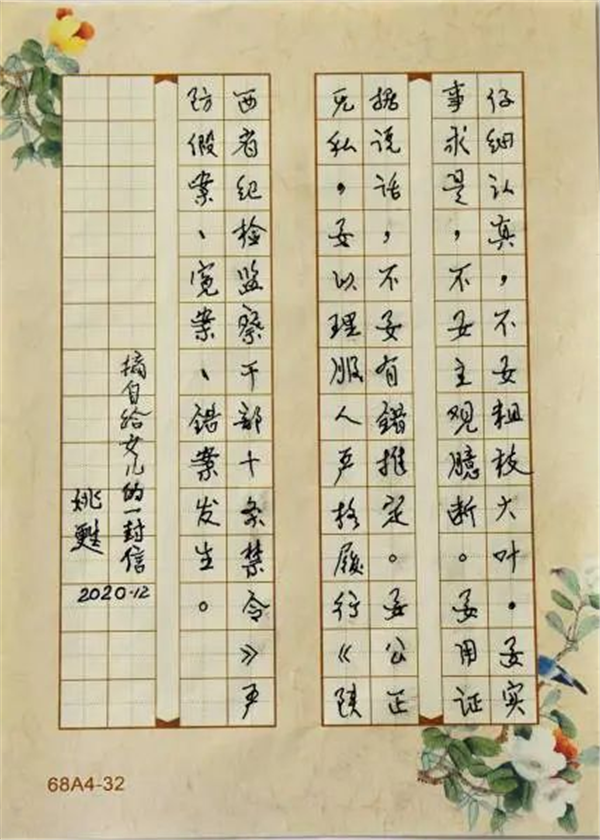 仔细认真，不要粗枝大叶。要实
事求是，不要主观臆断。要用证
据说话，不要有错推定。要公正
无私，要以理服人严格履行《陕
西省纪检监察干部十条禁令》严
防假案、冤案、错案发生。
摘自给女儿的一封信
姚甦
2020.12
68A4-32